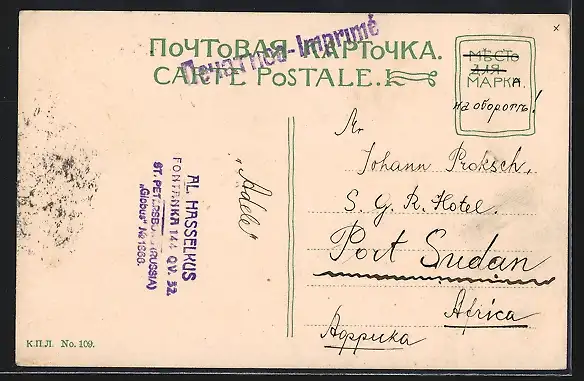 ПОЧТОВАЯ КАРТОЧКА.
CARTE POSTALE.
Печатное-Imprimé
МѢСТО
ДЛЯ
МАРКИ.
на оборотѣ!
Mr
Johann Proksch,
S. G. R. Hotel.
Port Sudan
Africa
Африка
"Adele"
AL. HASSELKUS
FONTANKA 144 QV. 32.
ST. PETERSBURG (RUSSIA)
„Globus" № 1868.
К.П.Л. No. 109.